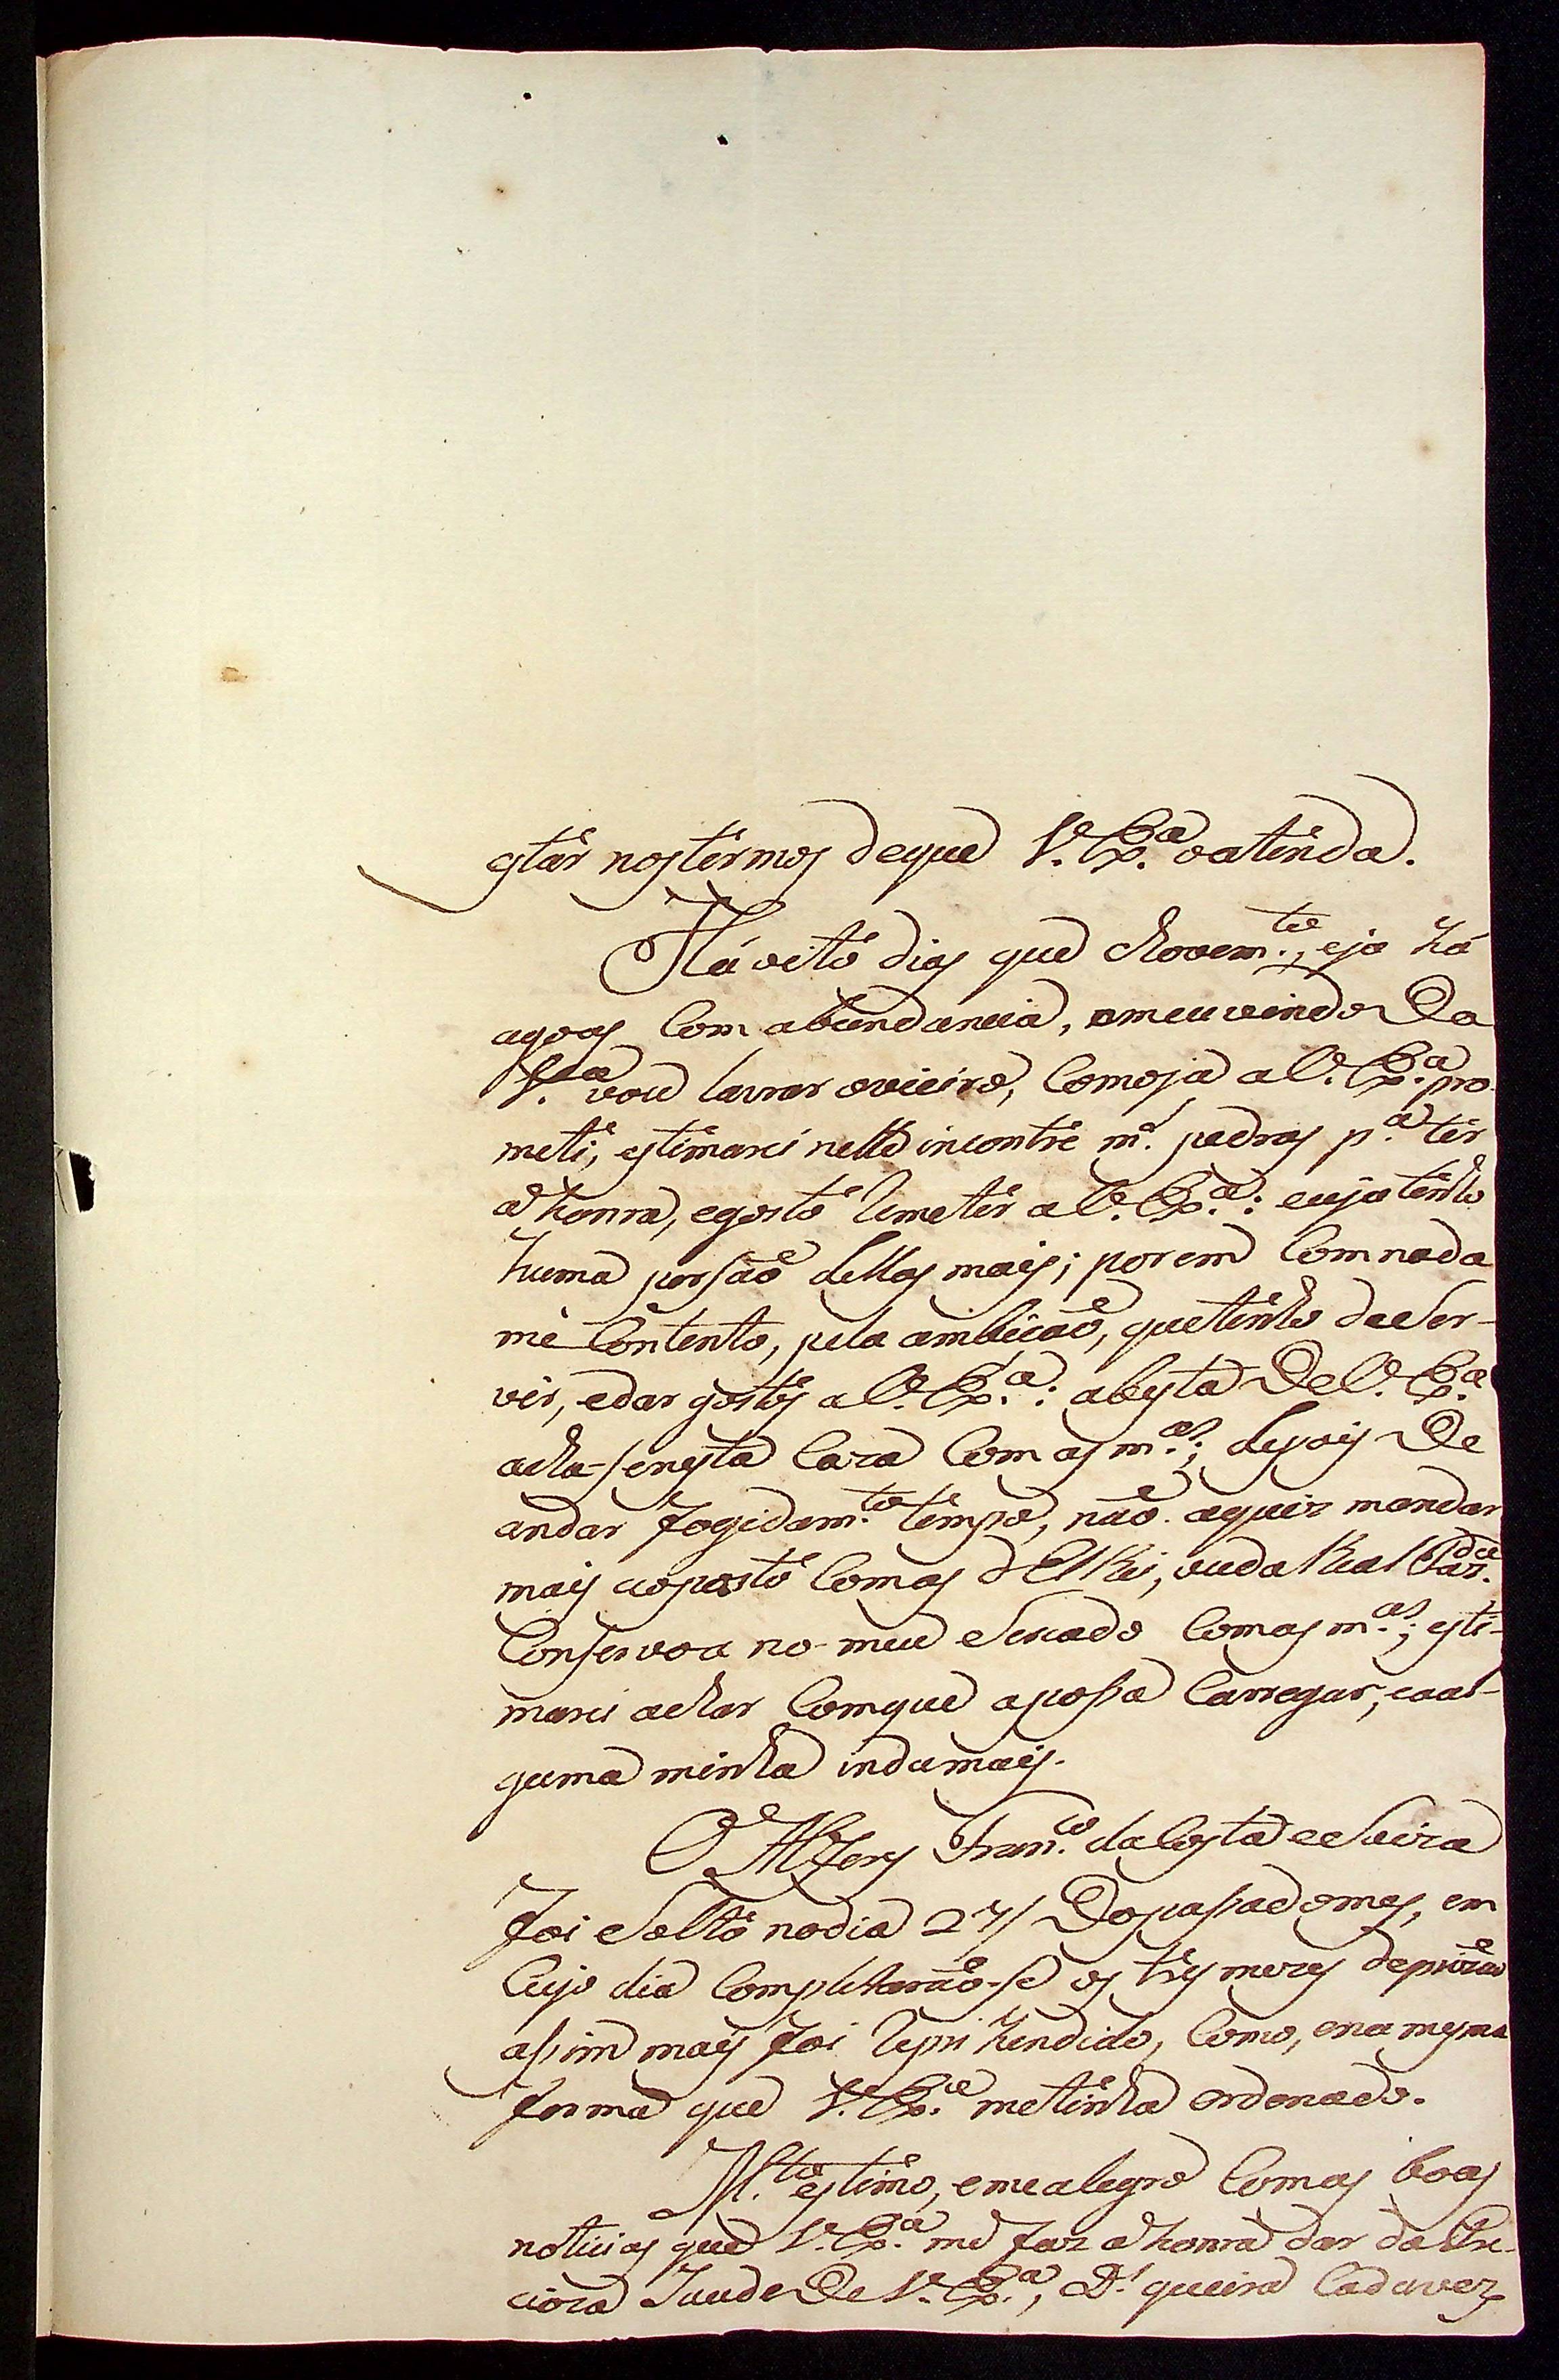 estár nos térmos deque V. Ex.ª o aténda.
Há oito dias que chovem.te, e ja há
agoas Com abundancia, e meu vindo Da
V.ª vou lavrar o vieiro, Como ja a V. Ex.ª pro-
meti, estimarei nelle incontre m.s pedras p.ª tér
a honra, e gosto Remetér a V. Ex.ª: eu ja tenho
huma porsão dellas mais; porem Com nada
me Contento, pela ambicão, que tenho de Ser-
vir, e dar gostos a V. Ex.ª: a besta De V. Ex.ª
acha-se nesta Caza Com as m.as; depois De
andar fogida m.to tempo, não a quiz mandar
mais ao pasto Com as d'ElRei, ou da Real Faz.da
Conservoa no meu Sercado Com as m.as; esti-
marei achar Com que a possa Carregar, e a al-
guma minha inda mais.
O Alferes Fran.co da Costa e Soiza
foi Solto no dia 27/ Do passado mes, em
Cujo dia Completarão-se os tres mezes de prizão
assim mais foi Reprihendido, Como, e na mesma
forma que V. Ex.ª me tinha ordenado.
M.to estimo, e me alegro Com as boas
noticias que V. Ex.ª me faz a honra dar da Pre-
cioza Saude De V. Ex.ª, D.s queira Cada vez